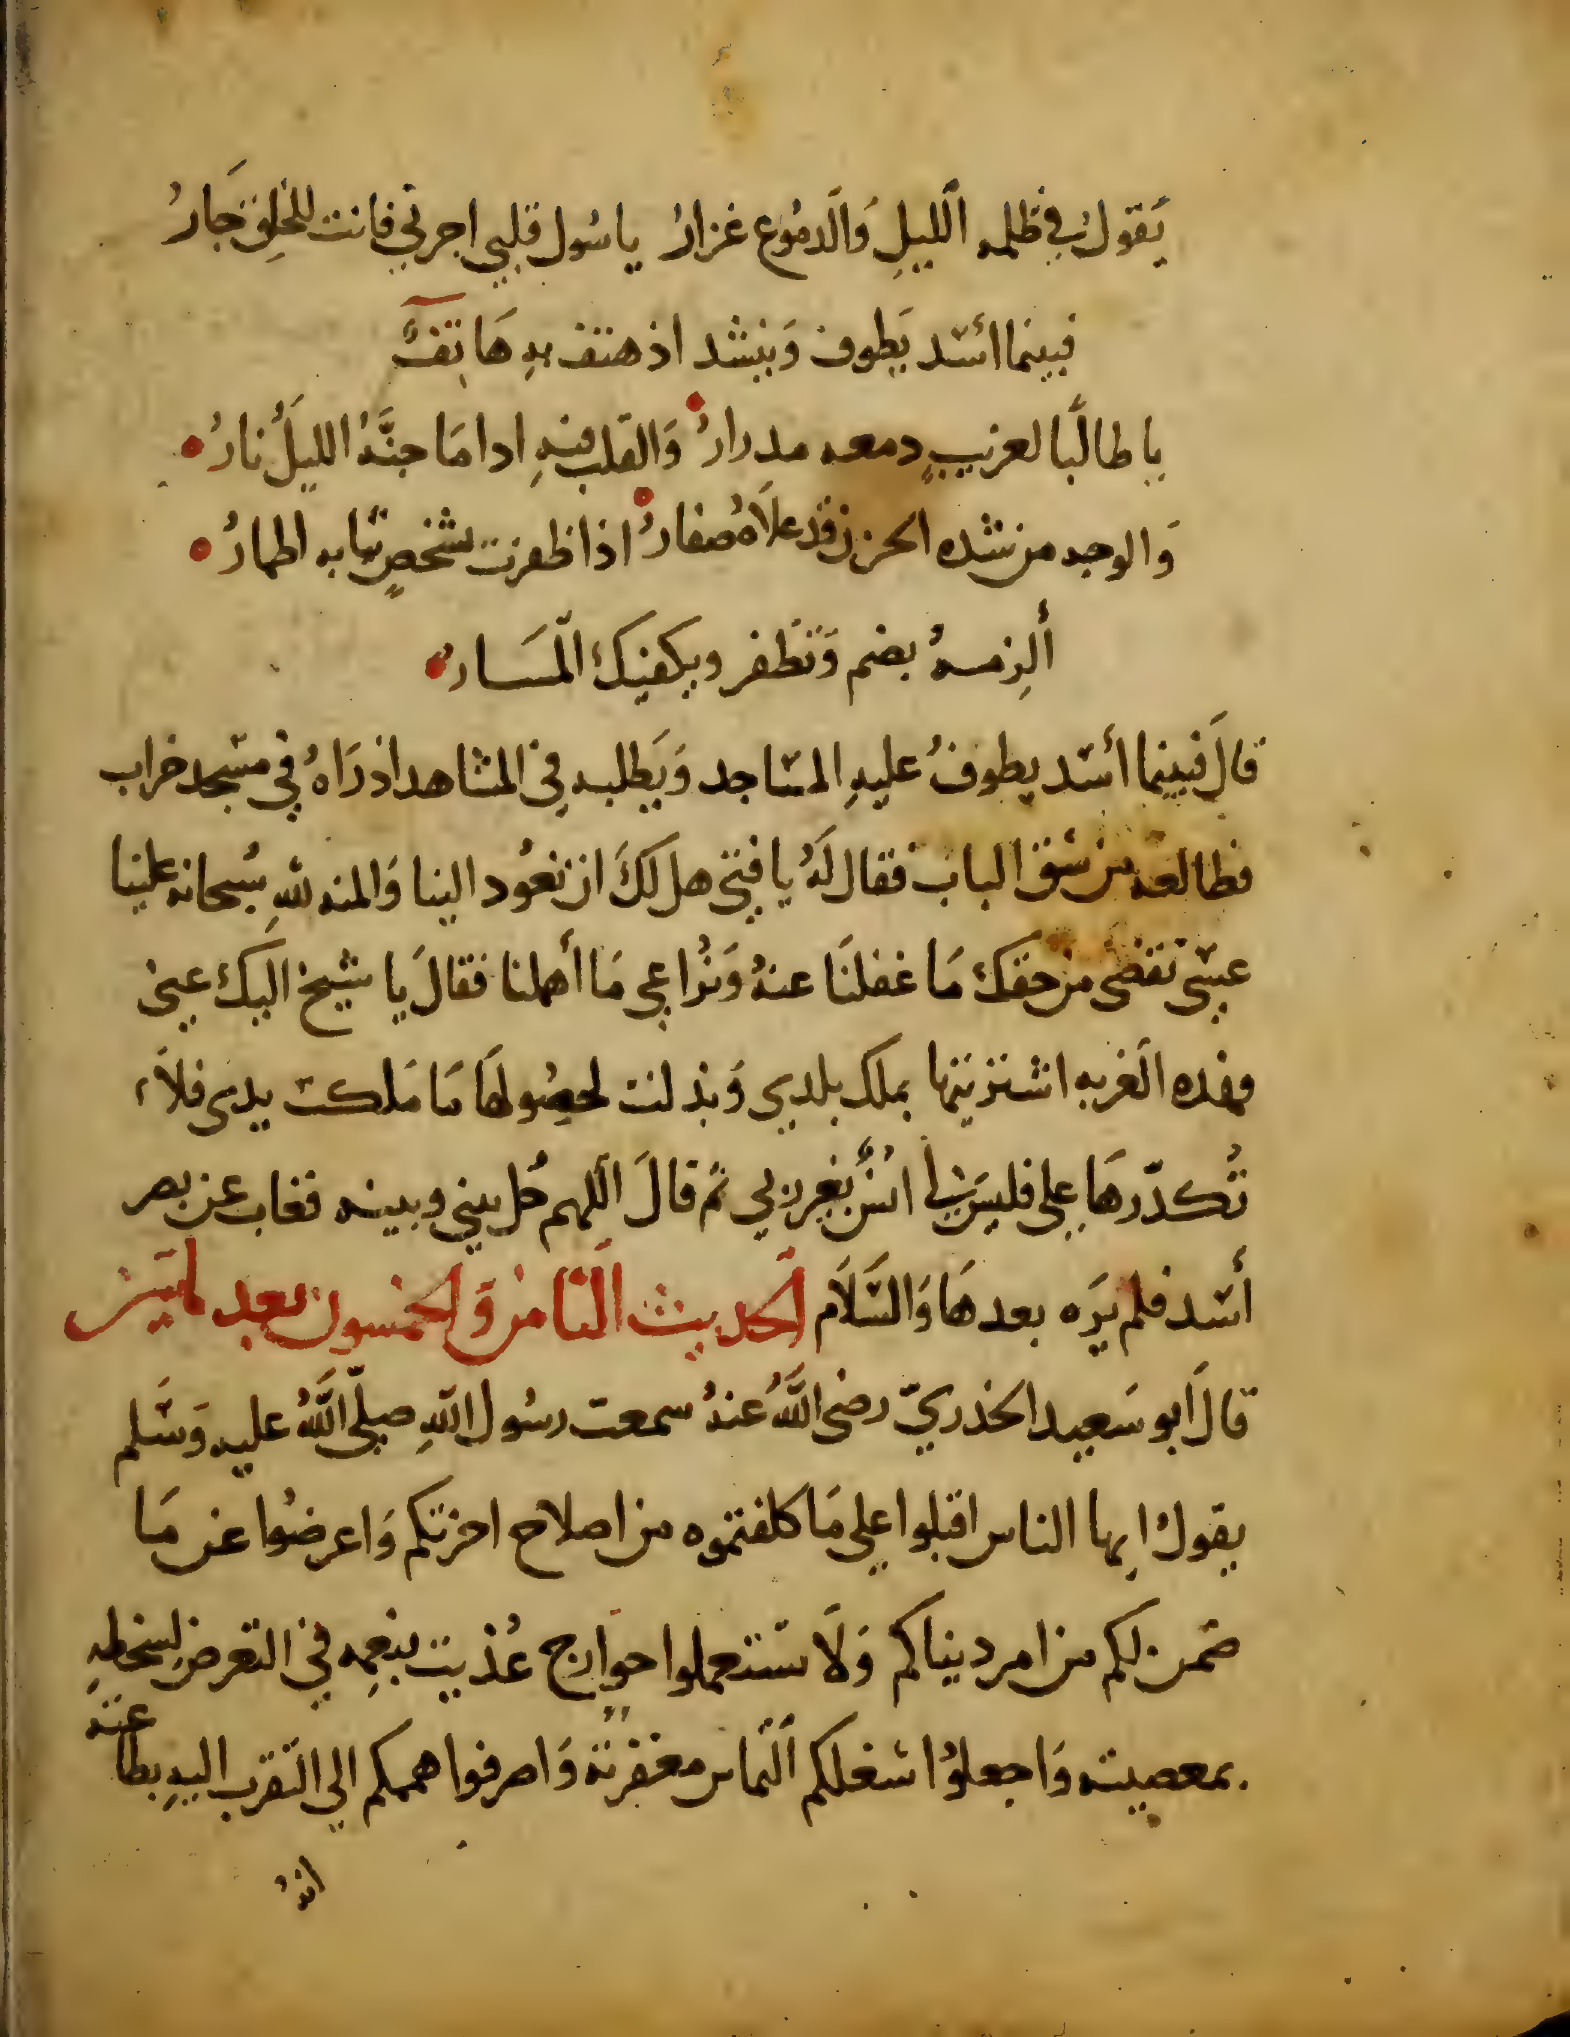 يَقولُ في ظلمه الليلِ وَالدمُوع غزارُ ياسُول قلبي اجرني فانت للخلقِ جَارُ
فبينما اسَد يَطوف وَينشد اذ هتف بهِ هَاتفٌ
يا طالبًا لغريبٍ دمعه مدرارُ وَالقلب منهِ اداما جنَّهُ الليلُ نارُ
وَالوجد من شده الحزن قد علاهُ صفارُ اذا ظفرت بشخصٍ ثيابه اطمارُ
ألزِمهُ بضم وَتظفر ويكفيك المسَارُ
قالَ فبينما أسَد يطوفُ عليهِ المسَاجد وَيَطلبه في المشاهد اذ رَاهُ في مسَجد خراب
فطالعه من شق الباب فقال لهُ يافتى هل لكَ ان تعُود الينا وَالمنه للهِ سُبحانه علينا
عسَى نقضى من حقك مَا غفلنَا عنهُ وَنُراعي مَا أهملنا فقالَ يا شيخ اليك عني
فهذه الغربه اشتريتها بملك بلدي وَبذلت لحصُولهَا مَا مَلكت يدى فلاَ
تُكدّرهَا علي فليسَ لي انسٌ بغير ربي ثم قالَ اللهم حُل بيني وبينه فغاب عن بصر
أسَد فلم يَره بعدهَا وَالسَلاَم الحديث الثامن وَالخمسون بعد مايتين
قالَ ابو سَعيد الخذريّ رضى اللهُ عنهُ سمعت رسُول اللهِ صلّى اللهُ عليه وَسَلم
يقول ايها الناس اقبلوا علي مَا كلفتموه من اصلاح اخرتكم وَاعرضُوا عن مَا
ضمن لكم من امر دينياكم وَلاَ تستعملوا جوارح غُذيت بنعمِه في التعرض لِسخطهِ
بمعصيته وَاجعلوُا شغلكم التماس مغفرته وَاصرفوا هممكم الي التقرب اليهِ بطاعته
انهُ